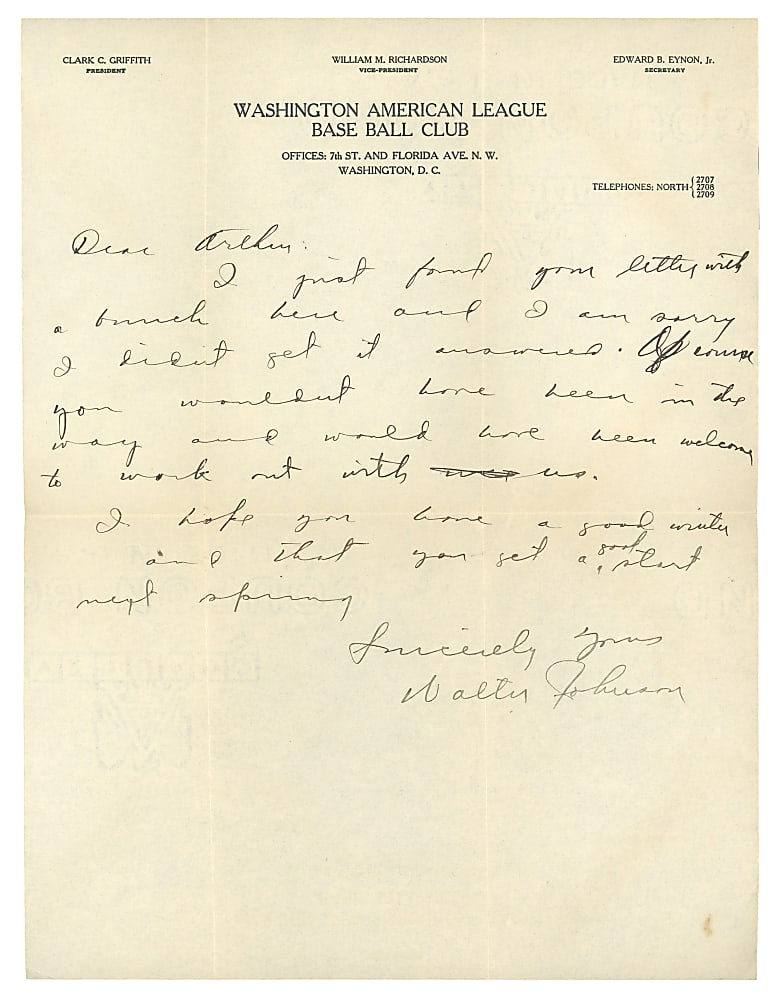 CLARK C. GRIFFITH
PRESIDENT
WILLIAM M. RICHARDSON
VICE-PRESIDENT
EDWARD B. EYNON, Jr.
SECRETARY
WASHINGTON AMERICAN LEAGUE
BASE BALL CLUB
OFFICES: 7th ST. AND FLORIDA AVE. N. W.
WASHINGTON, D. C.
TELEPHONES: NORTH { 2707
2708
2709
Dear Arthur:
I just found your letter with
a bunch here and I am sorry
I didn't get it answered. Of course
you wouldn't have been in the
way and would have been welcome
to work out with us.
I hope you have a good winter
and that you get a good start
next spring
Sincerely yours
Walter Johnson